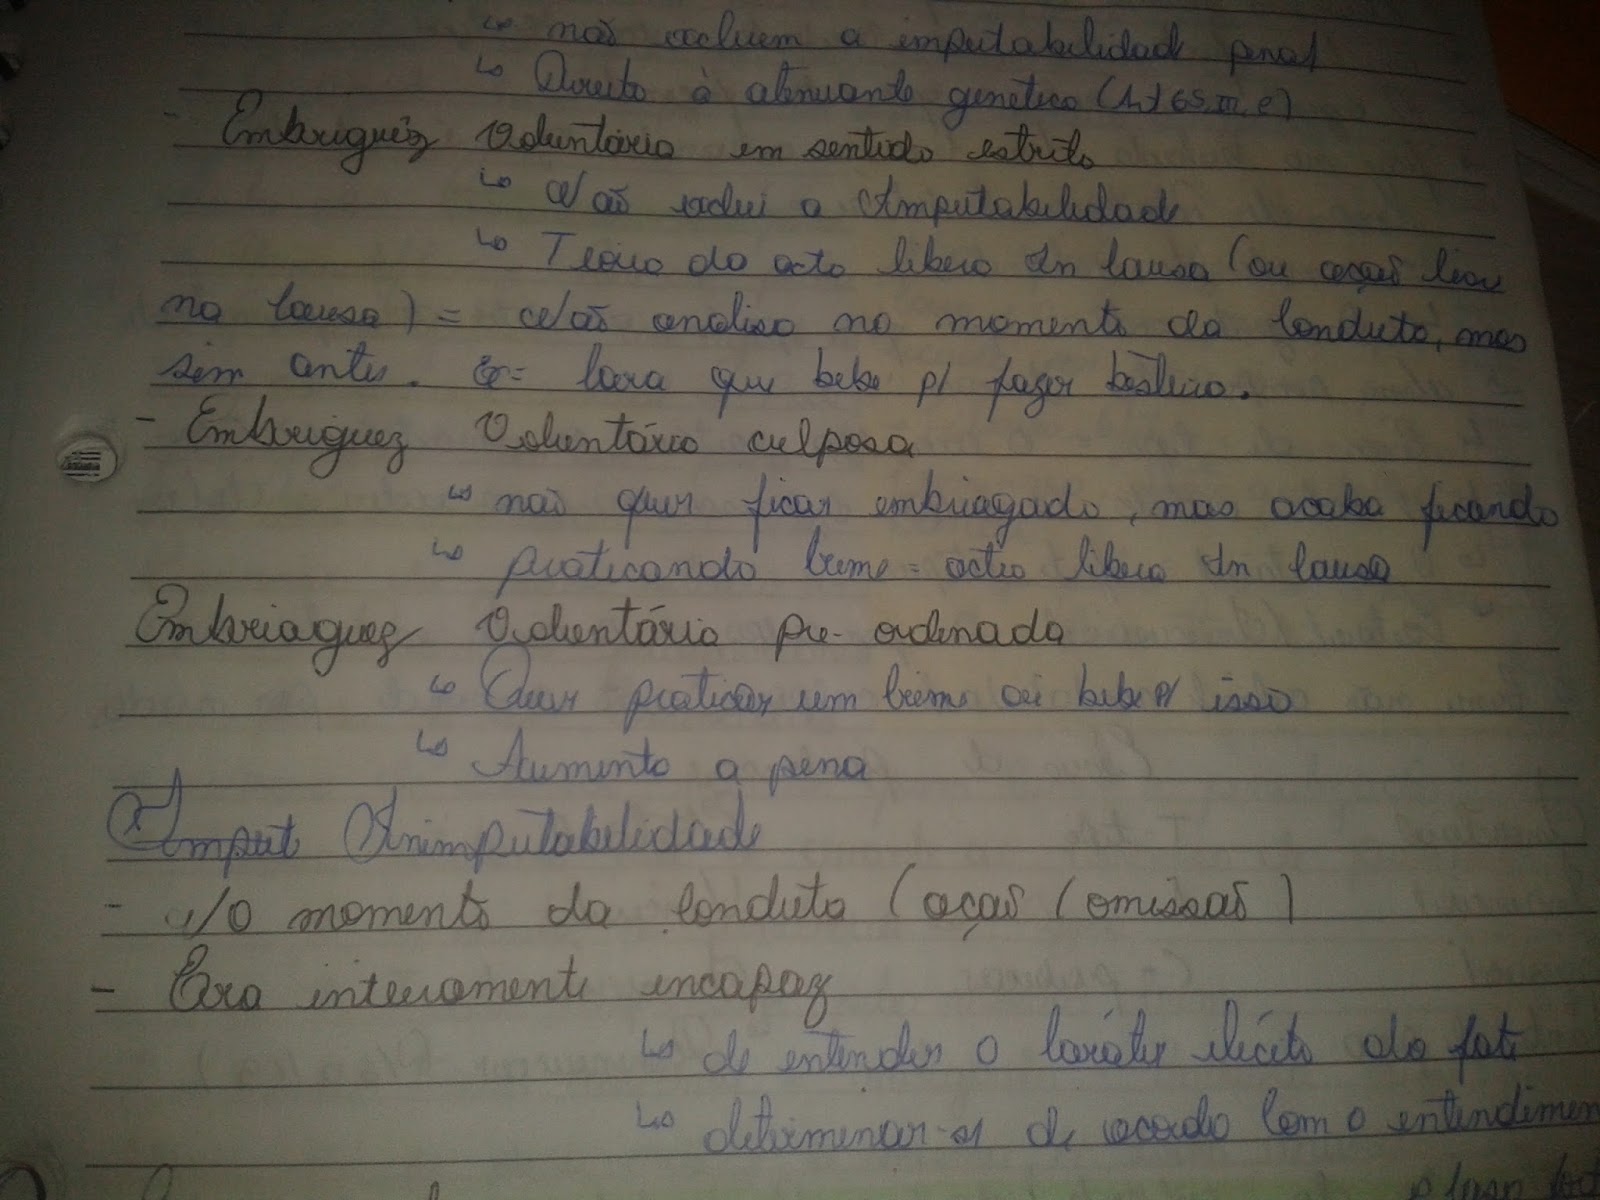 ↳ não excluem a imputabilidade penal
↳ Direito à atenuante genética (Art 65, III, c)
- Embriguêz Voluntária em sentido estrito
↳ Não exclui a Imputabilidade
↳ Teoria do acto libero In causa (ou acção livre
na causa) = Não analisa no momento da conduta, mas
sim antes. Ex= Cara que bebe p/ fazer besteira.
- Embriguez Voluntária culposa
↳ não quer ficar embriagado, mas acaba ficando
↳ praticando crime = actio libera In causa
Embriaguez Voluntária pre-ordenada
↳ Quer praticar um crime aí bebe p/ isso
↳ Aumenta a pena
Imput Inimputabilidade
- momento da conduta (ação (omissão)
- Era inteiramente incapaz
↳ de entender o caráter ilícito do fato
↳ determinar-se de acordo com o entendimen